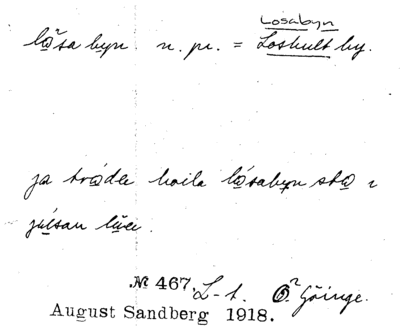 Losabyn
lŏsabyn n. pr. = Loshult by.
ja trodde hoila lósabyn sto i
júlsan
№ 467. L-t. Ö. Göinge.
August Sandberg 1918.